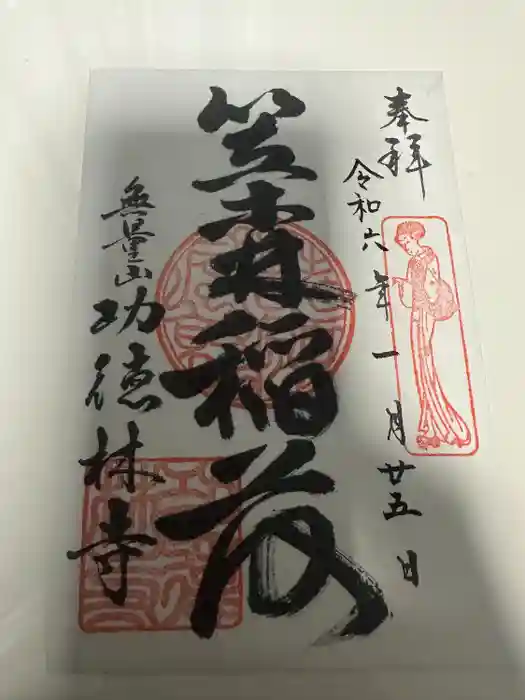 奉拝
令和六年一月廿五日
笠森稲荷
無量山
功徳林寺